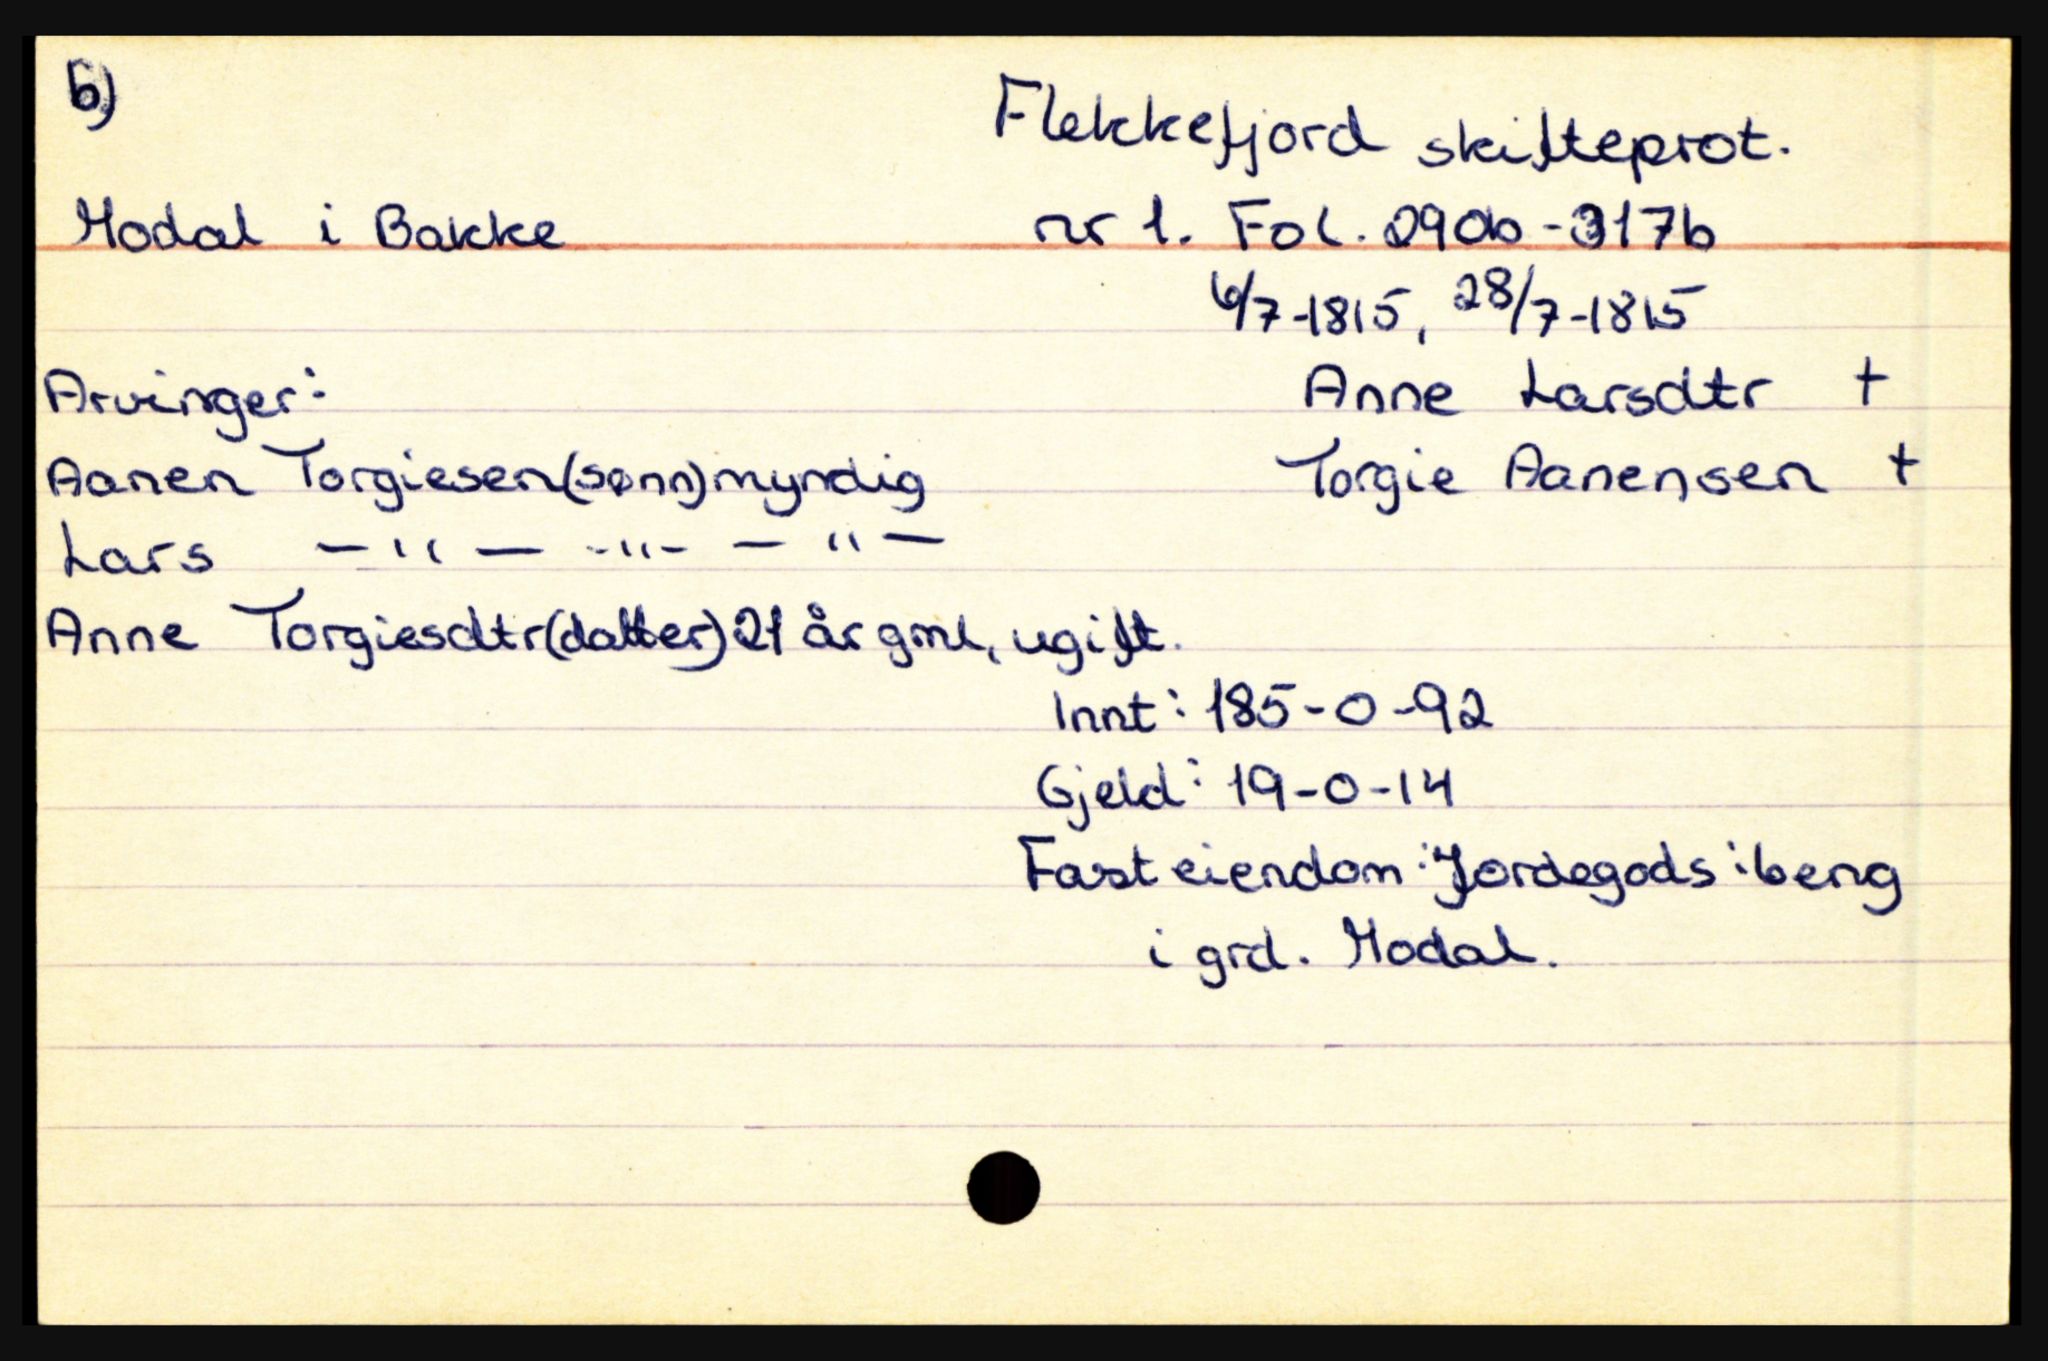 b)
Flekkefjord skifteprot.
Modal i Bakke
nr 1. Fol. 290b-317b
6/7-1815, 28/7-1815
Arvinger:
Anne Larsdtr +
Aanen Torgiesen(sønn)myndig
Torgie Aanensen +
Lars —"— -"- —"—
Anne Torgiesdtr(datter)21 år gml, ugift.
Innt: 185-0-92
Gjeld: 19-0-14
Fast eiendom: Jordegods: beng
i grd. Modal.